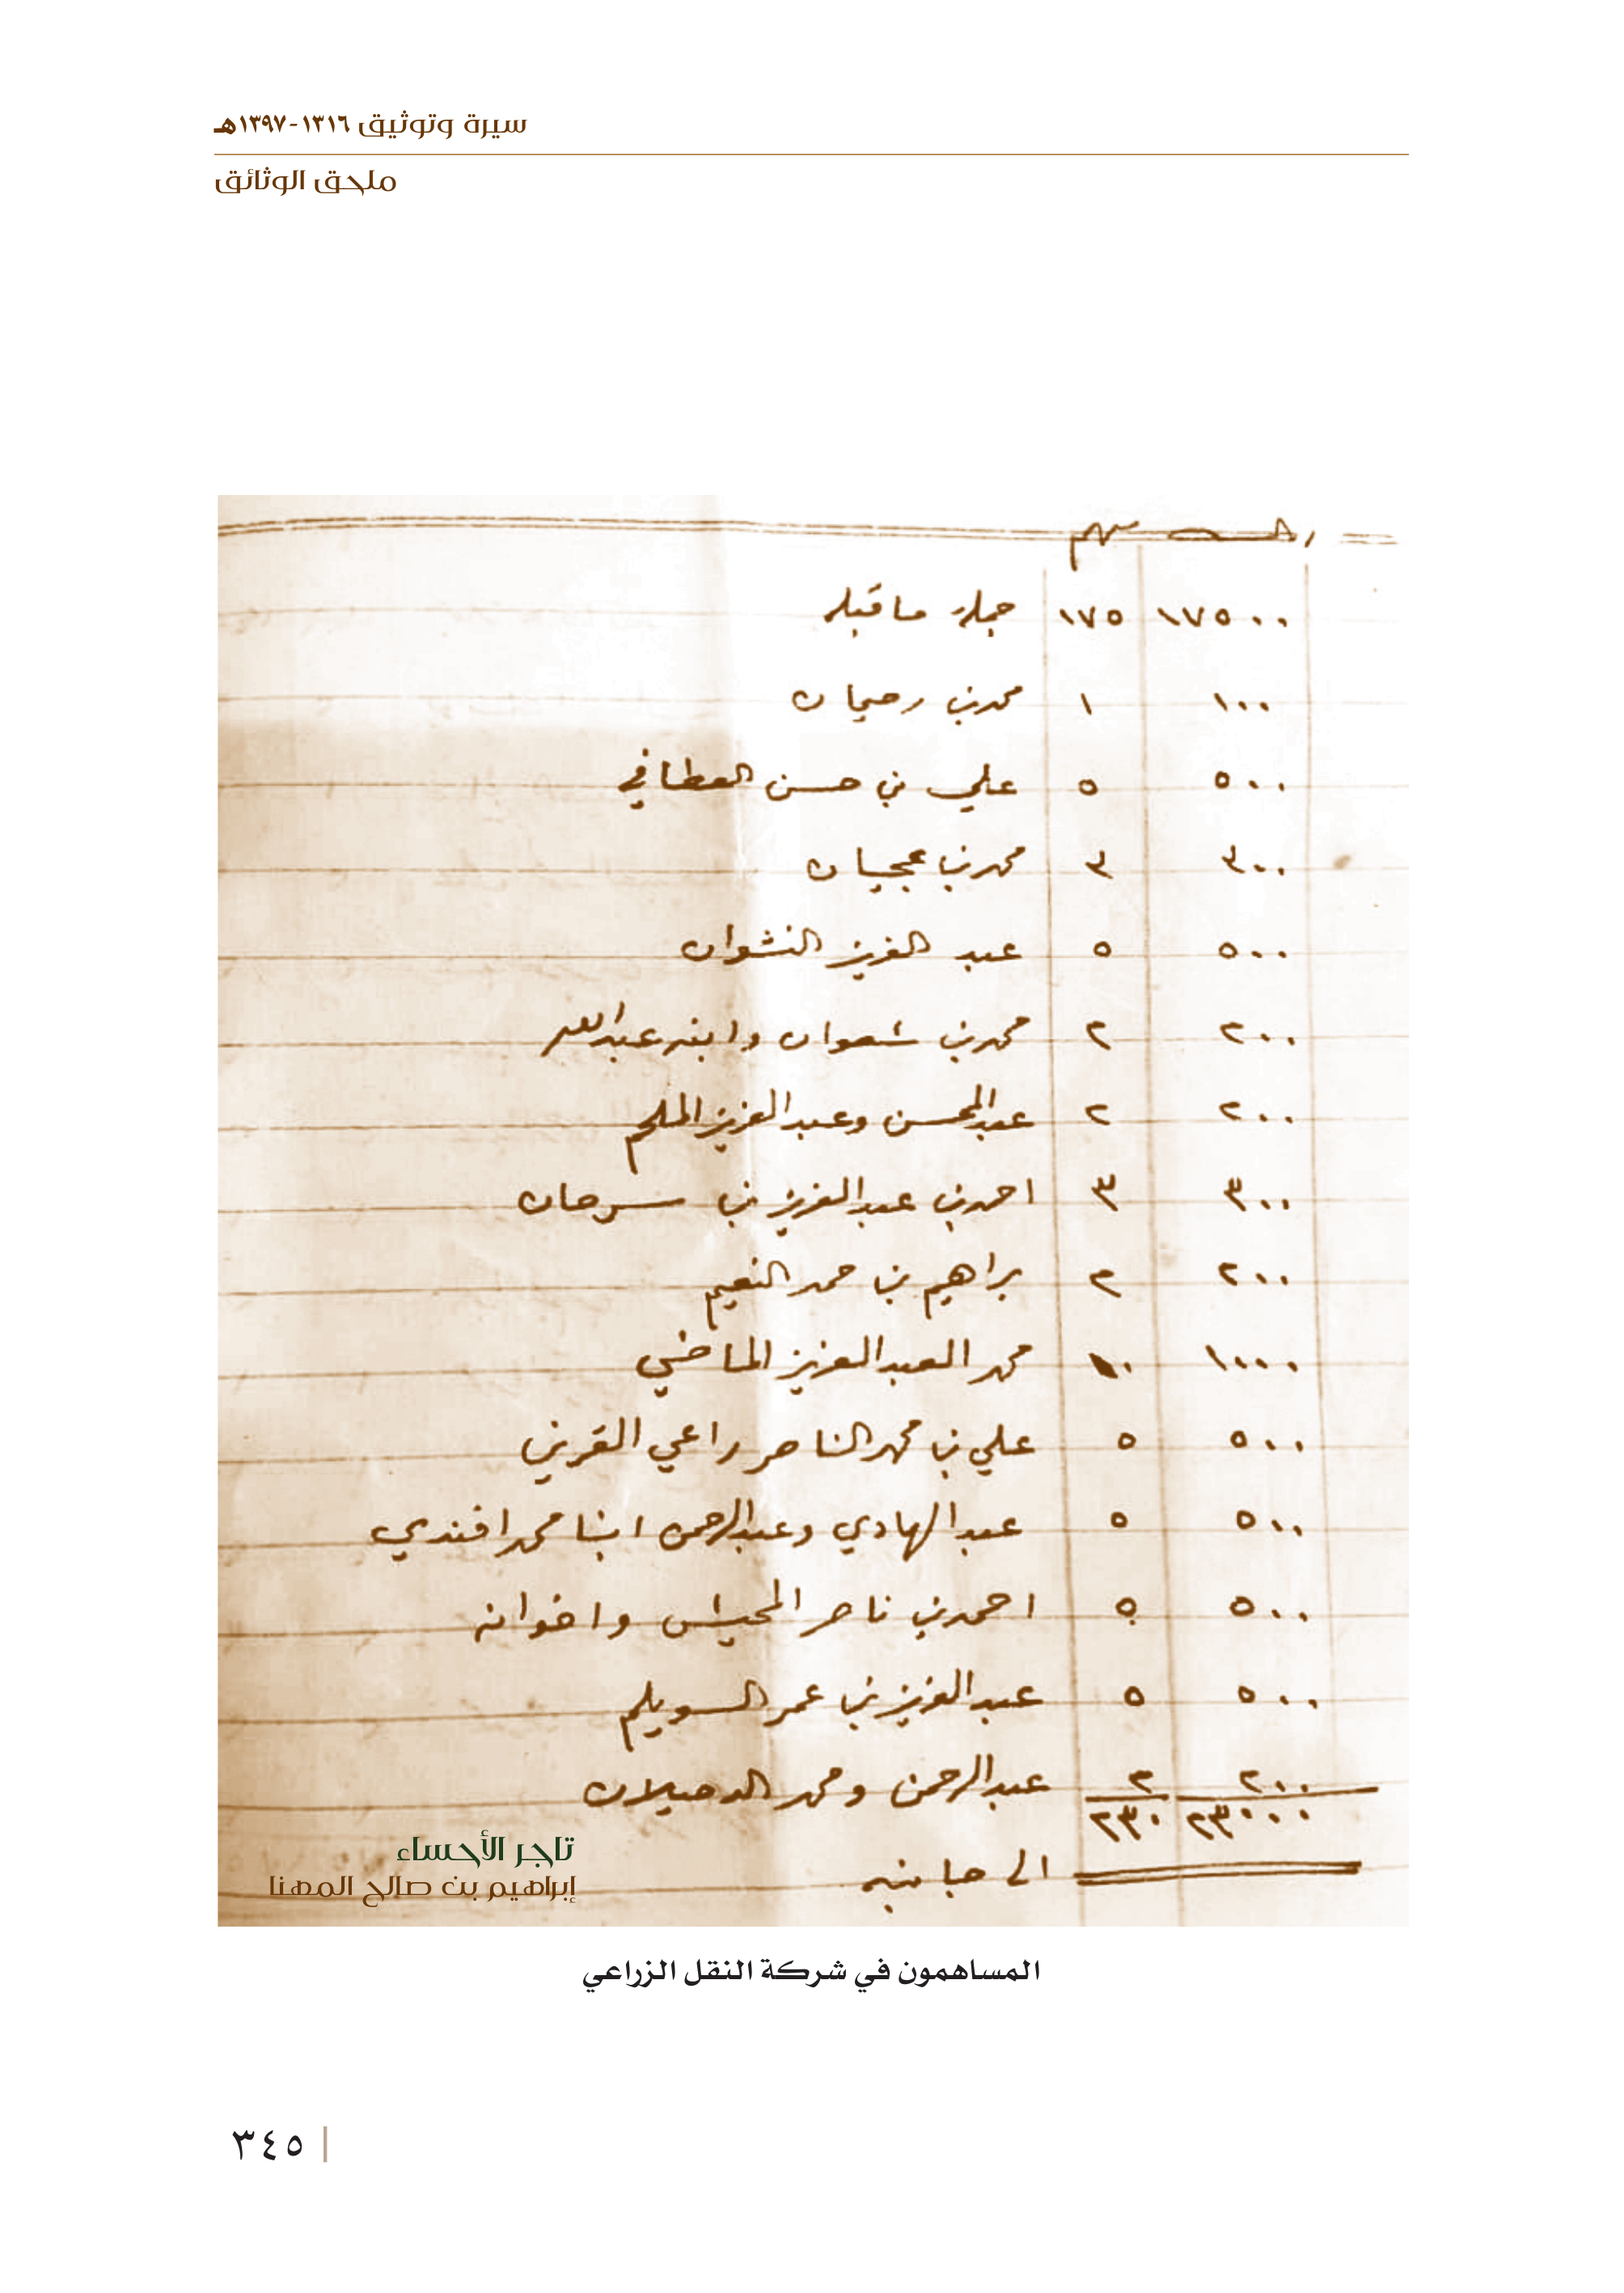 سيرة وتوثيق ١٣١٦-١٣٩٧هـ
ملحق الوثائق
سهم
١٧٥٠٠ ١٧٥ جملة ما قبله
١٠٠ ١ محمد بن رحيمان
٥٠٠ ٥ علي بن حسن العطافي
٣٠٠ ٣ محمد بن عجيان
٥٠٠ ٥ عبد العزيز النشوان
٢٠٠ ٢ محمد بن شعوان وابنه عبدالله
٢٠٠ ٢ عبدالمحسن وعبدالعزيز الملحم
٣٠٠ ٣ احمد بن عبدالعزيز بن سرحان
٢٠٠ ٢ براهيم بن حمد النعيم
١٠٠٠ ١٠ محمد العبدالعزيز الماضي
٥٠٠ ٥ علي بن محمد الناصر راعي القرين
٥٠٠ ٥ عبدالهادي وعبدالرحمن ابنا محمد افندي
٥٠٠ ٥ احمد بن ناصر المحيش واخوانه
٥٠٠ ٥ عبدالعزيز بن عمر السويلم
٢٠٠ ٢ عبدالرحمن ومحمد الدحيلان
٢٣٠٠٠ ٢٣٠
الى جانبه
تاجر الأحساء
إبراهيم بن صالح المهنا
المساهمون في شركة النقل الزراعي
٣٤٥